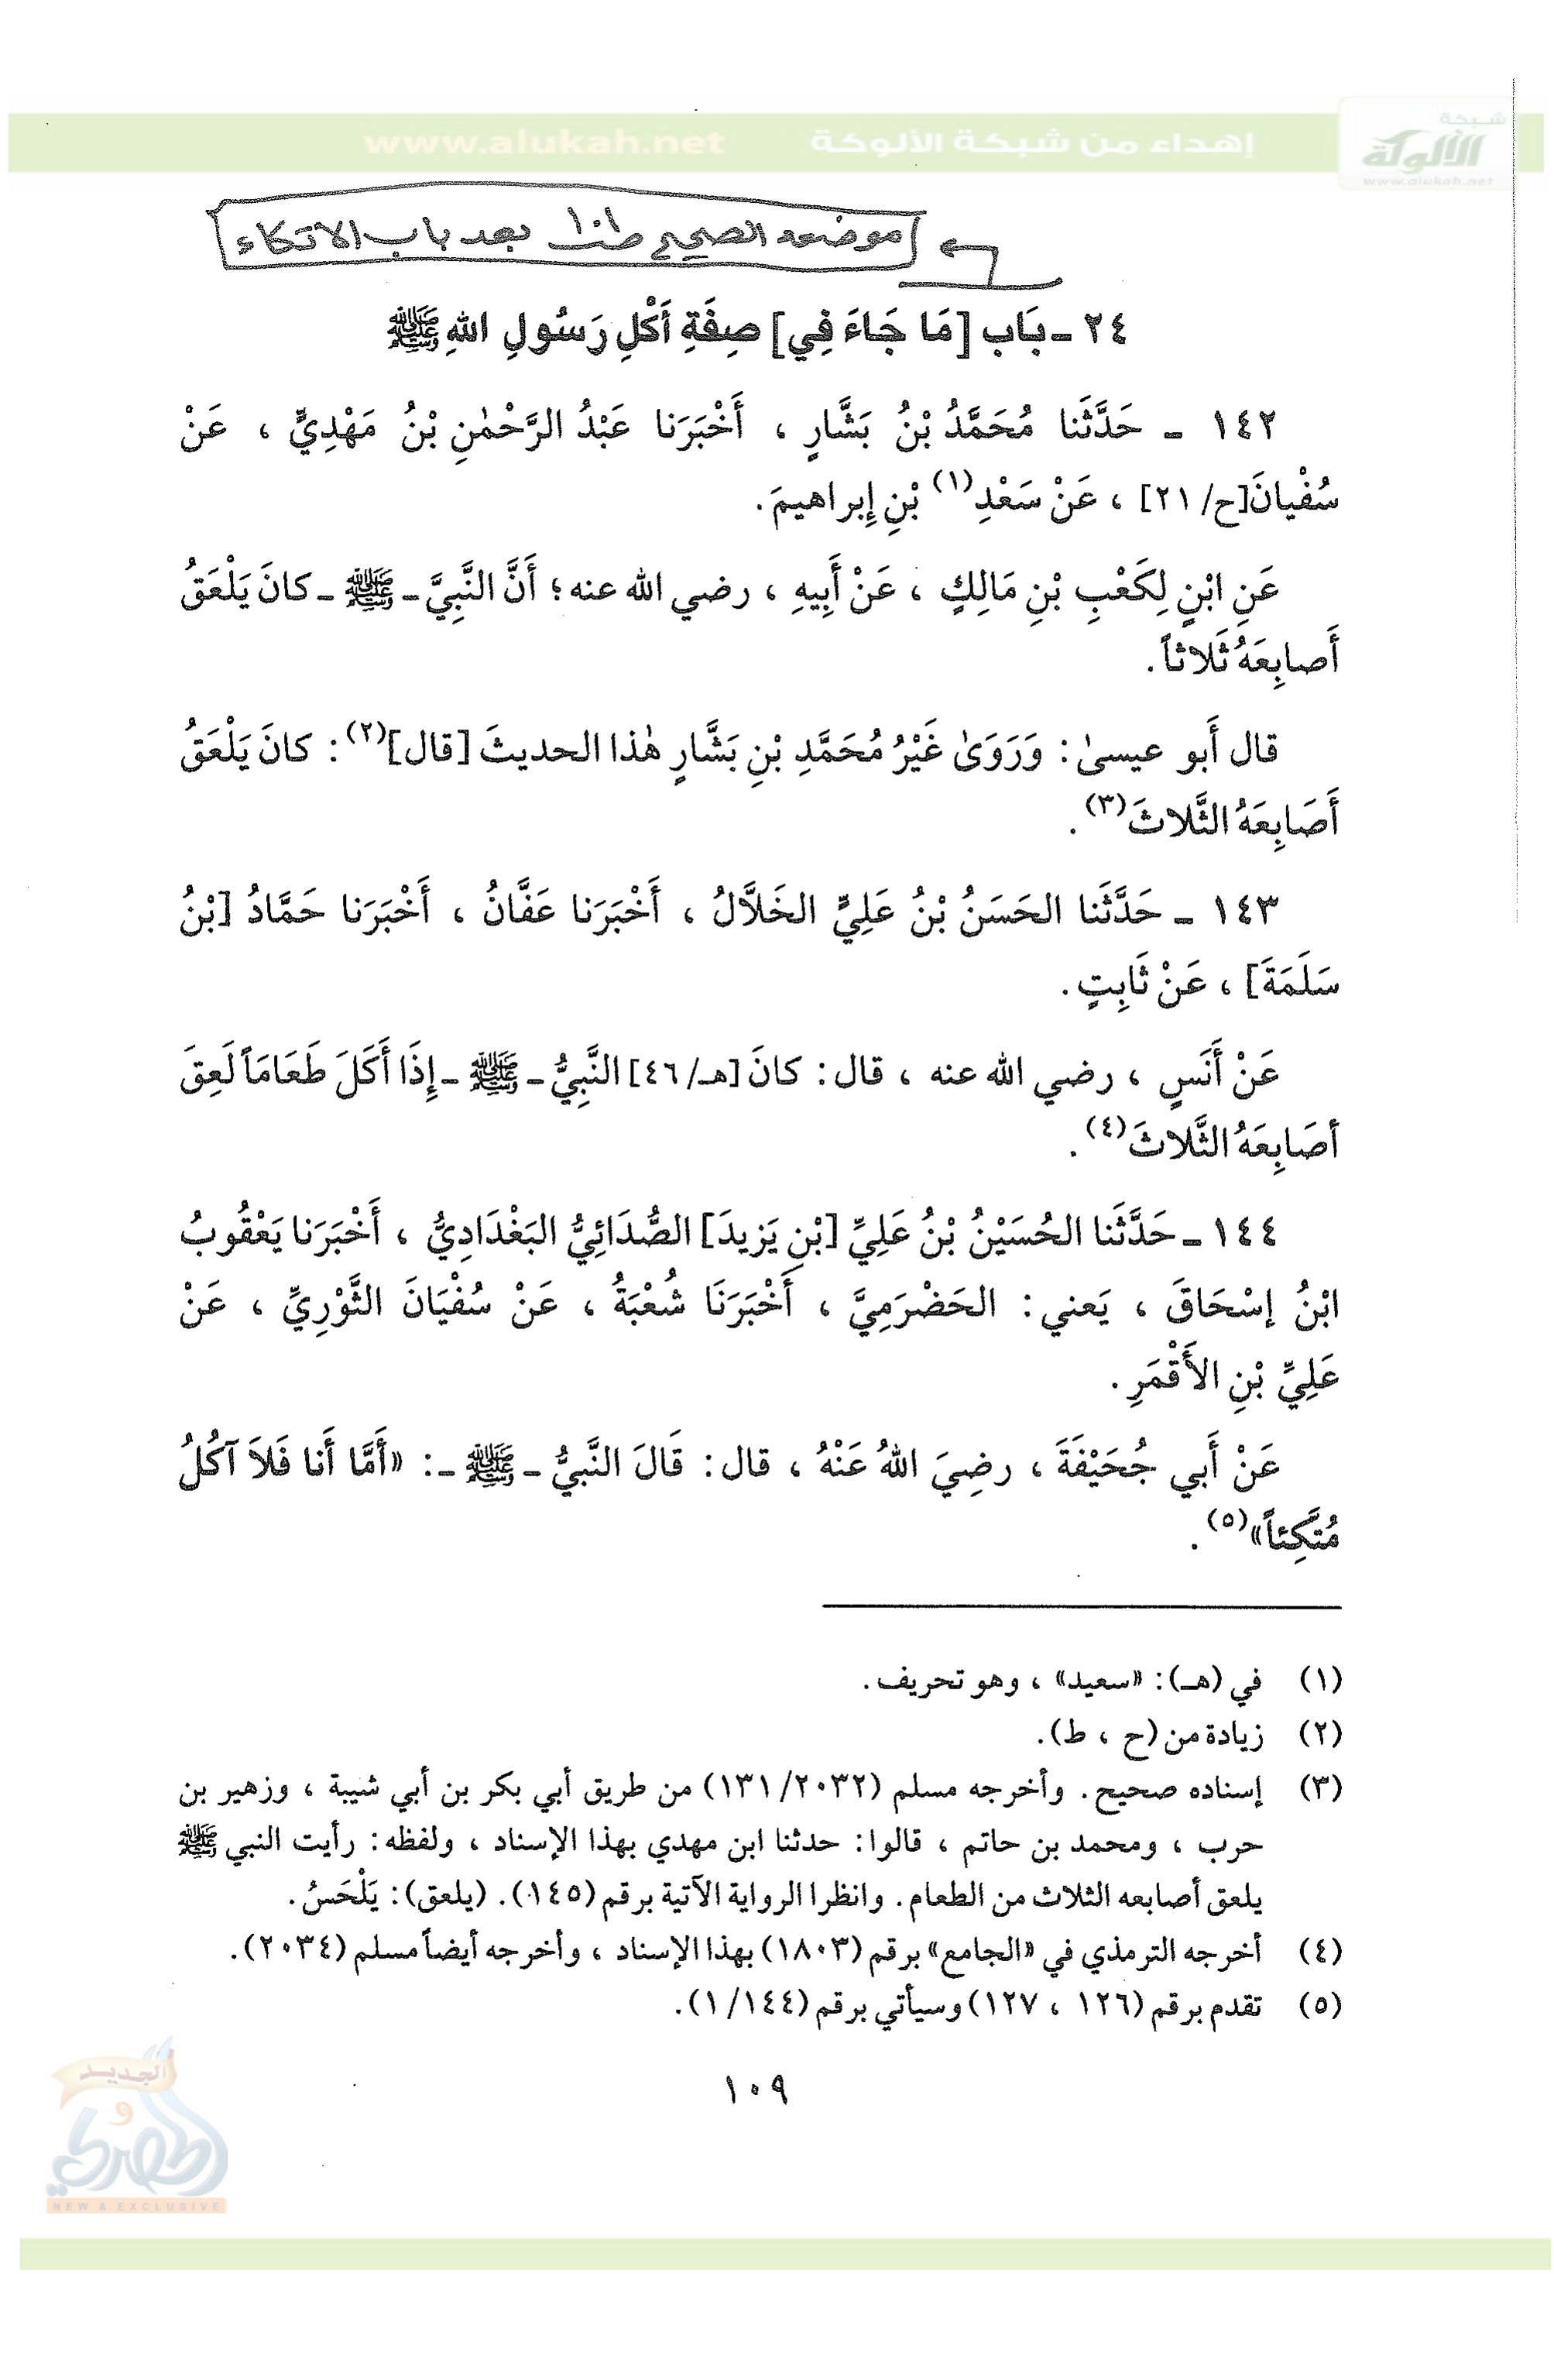 شبكة
الألوكة
www.alukah.net
إهداء من شبكة الألوكة
www.alukah.net
موضعه الصحيح بعد باب الاتكاء
٢٤ ـ بَاب [مَا جَاءَ فِي] صِفَةِ أَكْلِ رَسُولِ اللهِ ﷺ
١٤٢ ـ حَدَّثَنا مُحَمَّدُ بْنُ بَشَّارٍ ، أَخْبَرَنا عَبْدُ الرَّحْمٰنِ بْنُ مَهْدِيٍّ ، عَنْ
سُفْيانَ[ح/ ٢١] ، عَنْ سَعْدِ(١) بْنِ إِبراهيمَ.
عَنِ ابْنٍ لِكَعْبِ بْنِ مَالِكٍ ، عَنْ أَبِيهِ ، رضي الله عنه ؛ أَنَّ النَّبِيَّ ـ ﷺ ـ كانَ يَلْعَقُ
أَصابِعَهُ ثَلاثاً.
قال أَبو عيسىٰ: وَرَوَىٰ غَيْرُ مُحَمَّدِ بْنِ بَشَّارٍ هٰذا الحديثَ [قال](٢): كانَ يَلْعَقُ
أَصَابِعَهُ الثَّلاثَ(٣).
١٤٣ ـ حَدَّثَنا الحَسَنُ بْنُ عَلِيٍّ الخَلاَّلُ ، أَخْبَرَنا عَفَّانُ ، أَخْبَرَنا حَمَّادُ [بْنُ
سَلَمَةَ] ، عَنْ ثَابِتٍ.
عَنْ أَنَسٍ ، رضي الله عنه ، قال: كانَ [هـ/ ٤٦] النَّبِيُّ ـ ﷺ ـ إِذَا أَكَلَ طَعَامَاً لَعِقَ
أصَابِعَهُ الثَّلاثَ(٤).
١٤٤ ـ حَدَّثَنا الحُسَيْنُ بْنُ عَلِيِّ [بْنِ يَزِيدَ] الصُّدَائِيُّ البَغْدَادِيُّ ، أَخْبَرَنا يَعْقُوبُ
ابْنُ إسْحَاقَ ، يَعني: الحَضْرَمِيَّ ، أَخْبَرَنَا شُعْبَةُ ، عَنْ سُفْيَانَ الثَّوْرِيِّ ، عَنْ
عَلِيِّ بْنِ الأَقْمَرِ.
عَنْ أَبي جُحَيْفَةَ ، رضِيَ اللهُ عَنْهُ ، قال: قَالَ النَّبيُّ ـ ﷺ ـ: «أَمَّا أَنا فَلاَ آكُلُ
مُتَّكِئاً»(٥).
(١) في (هـ): «سعيد» ، وهو تحريف.
(٢) زيادة من (ح ، ط).
(٣) إسناده صحيح. وأخرجه مسلم (٢٠٣٢/ ١٣١) من طريق أبي بكر بن أبي شيبة ، وزهير بن
حرب ، ومحمد بن حاتم ، قالوا: حدثنا ابن مهدي بهذا الإسناد ، ولفظه: رأيت النبي ﷺ
يلعق أصابعه الثلاث من الطعام. وانظرا الرواية الآتية برقم (١٤٥). (يلعق): يَلْحَسُ.
(٤) أخرجه الترمذي في «الجامع» برقم (١٨٠٣) بهذا الإسناد ، وأخرجه أيضاً مسلم (٢٠٣٤).
(٥) تقدم برقم (١٢٦ ، ١٢٧) وسيأتي برقم (١/١٤٤).
١٠٩
الجديد
و
الحصري
NEW & EXCLUSIVE